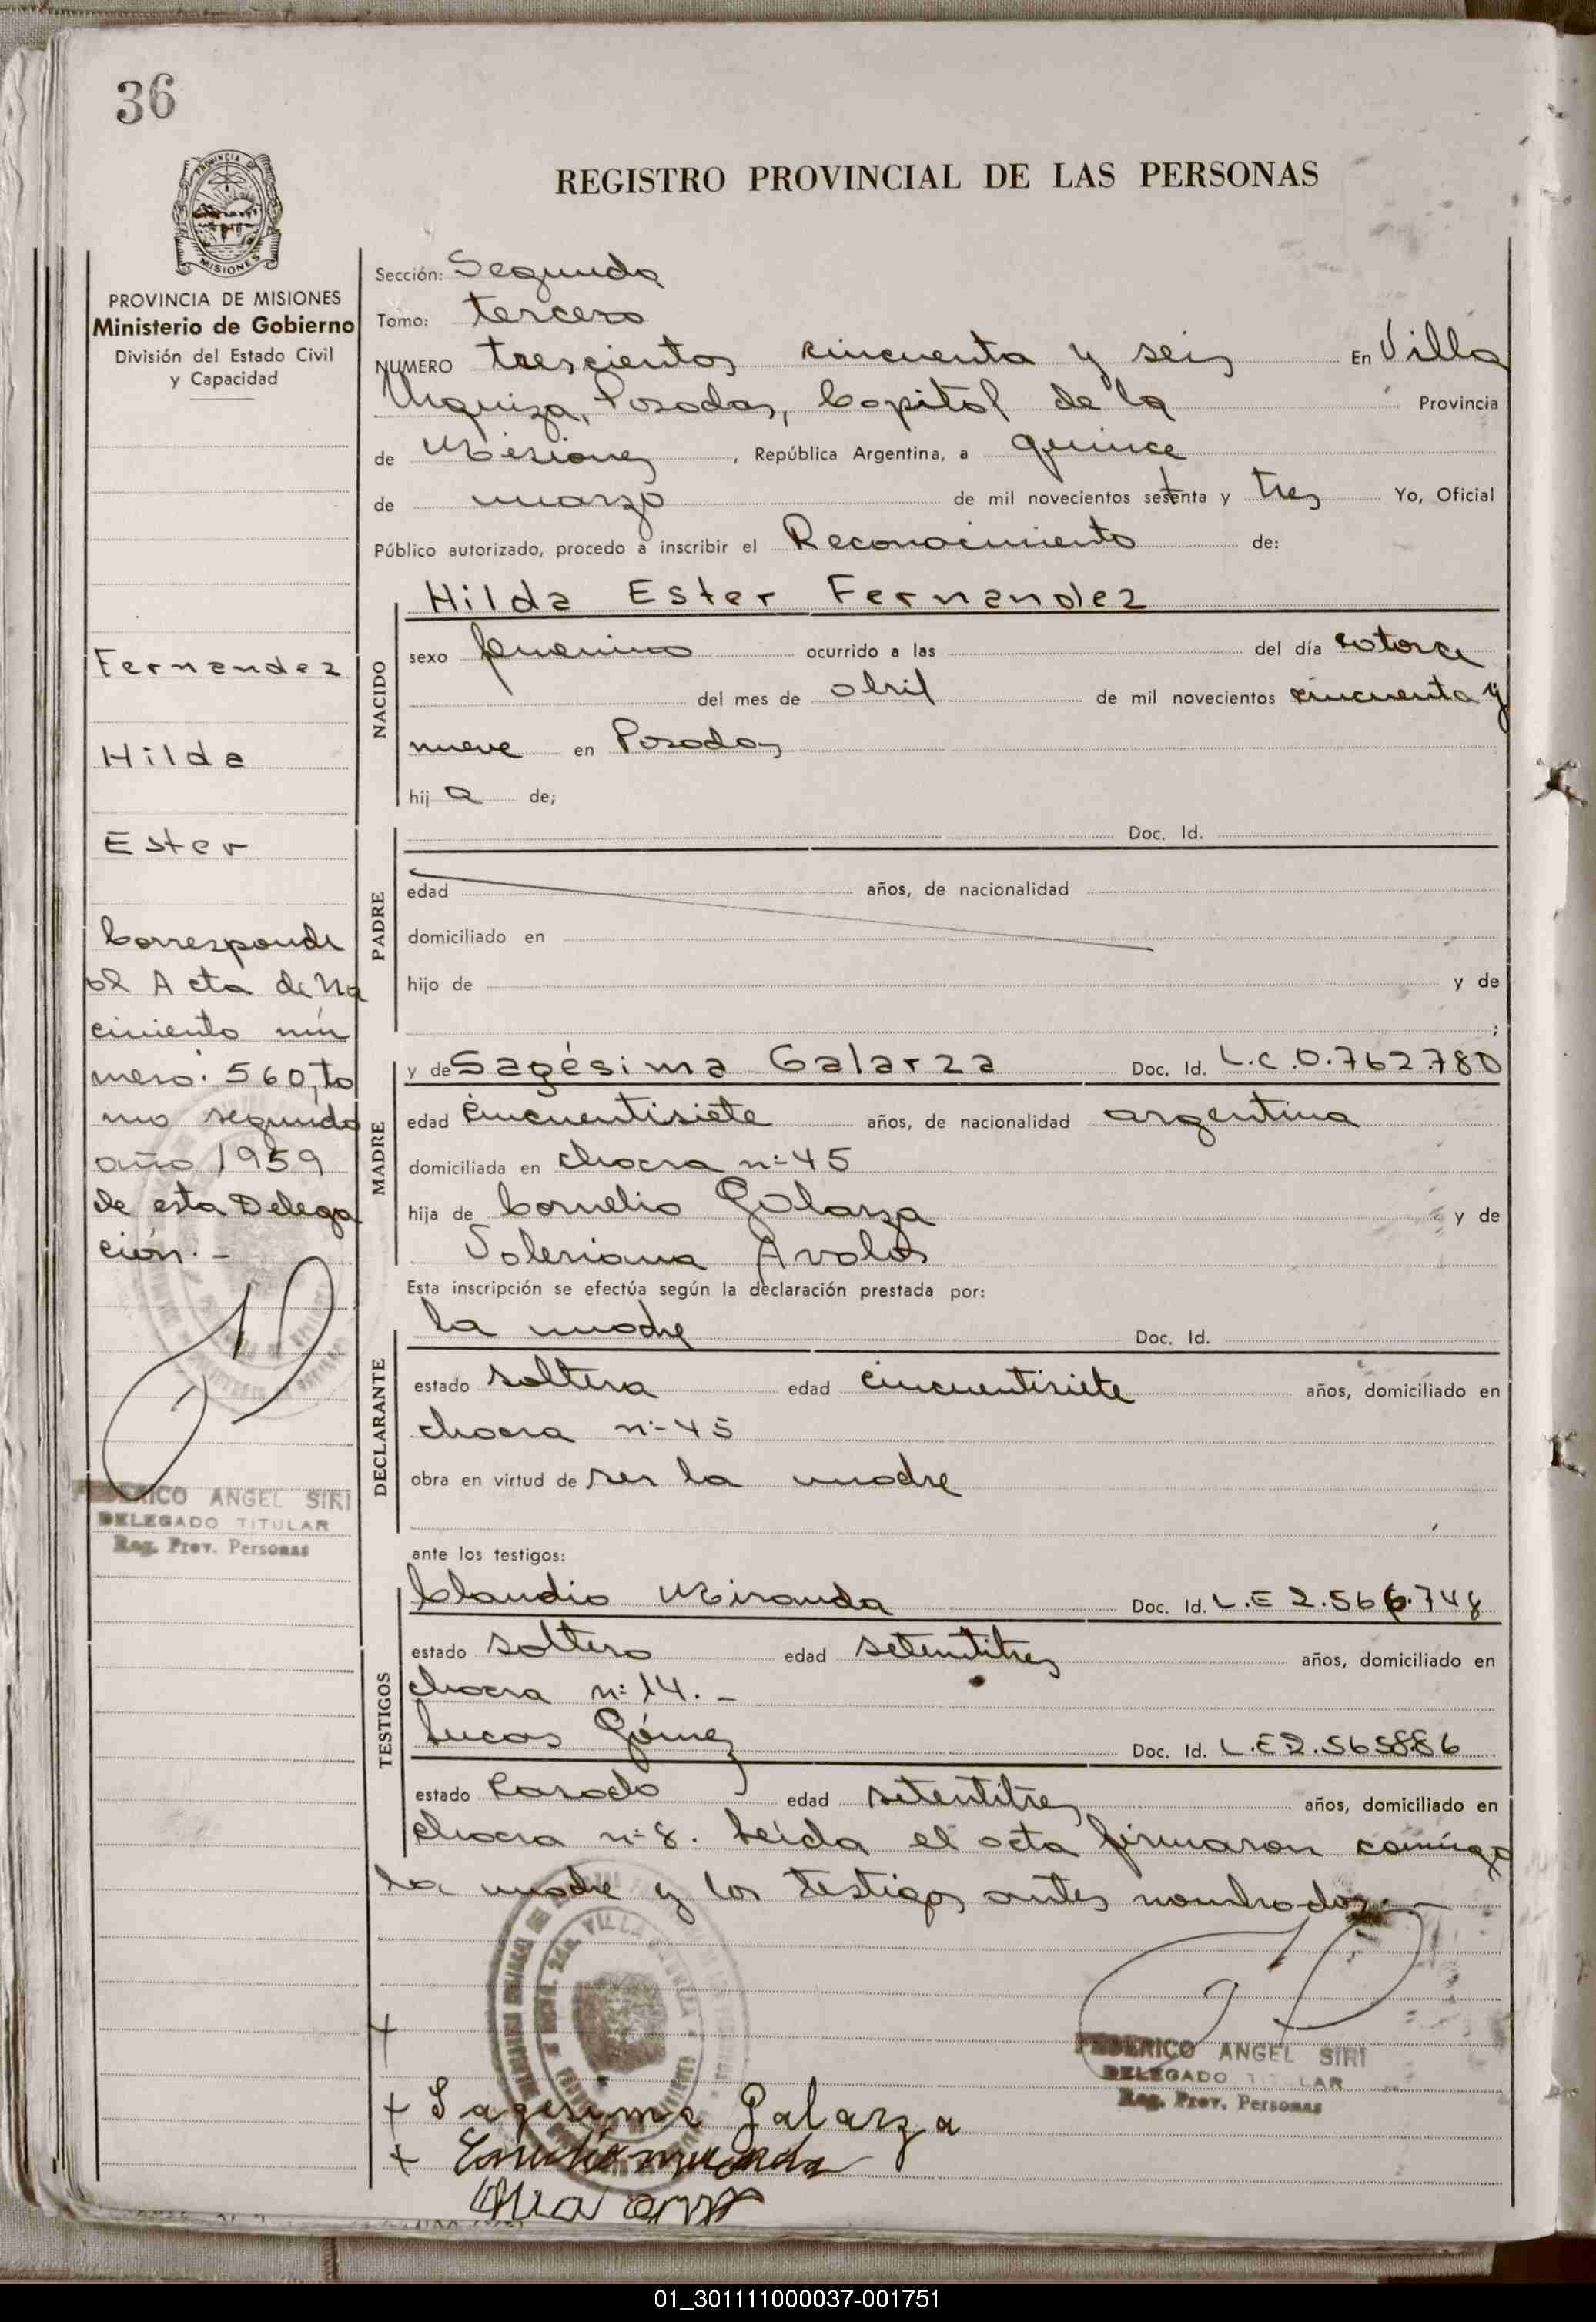 36
PROVINCIA DE MISIONES
Ministerio de Gobierno
División del Estado Civil
y Capacidad
Fernandez
Hilda
Ester
Corresponde
al Acta de Na
cimiento nú
mero: 560, to
mo segundo
año 1959
de esta Delega
ción.-
FEDERICO ANGEL SIRI
DELEGADO TITULAR
Reg. Prov. Personas
REGISTRO PROVINCIAL DE LAS PERSONAS
Sección: Segunda
Tomo: tercero
NUMERO trescientos cincuenta y seis En Villa
Urquiza, Posadas, Capital de la Provincia
de Misiones, República Argentina, a quince
de marzo de mil novecientos setenta y tres Yo, Oficial
Público autorizado, procedo a inscribir el Reconocimiento de:
Hilda Ester Fernandez
NACIDO
sexo femenino ocurrido a las del día catorce
del mes de abril de mil novecientos cincuenta y
nueve en Posadas
hij a de;
PADRE
Doc. Id.
edad años, de nacionalidad
domiciliado en
hijo de y de
;
MADRE
y de Sagésima Galarza Doc. Id. L.C.0.762.780
edad cincuentisiete años, de nacionalidad argentina
domiciliada en chacra nº 45
hija de Cornelio Galarza y de
Valeriana Avalos
Esta inscripción se efectúa según la declaración prestada por:
DECLARANTE
la madre Doc. Id.
estado soltera edad cincuentisiete años, domiciliado en
chacra nº 45
obra en virtud de ser la madre
ante los testigos:
TESTIGOS
Claudio Miranda Doc. Id. L.E 2.566.748
estado soltero edad setentitres años, domiciliado en
chacra nº 14.-
Lucas Gómez Doc. Id. L.E2.565886
estado Casado edad setentitres años, domiciliado en
chacra nº 8. Leida el acta firmaron conmigo
la madre y los testigos antes nombrados.-
FEDERICO ANGEL SIRI
DELEGADO TITULAR
Reg. Prov. Personas
+ Sagesima Galarza
+
01_301111000037-001751